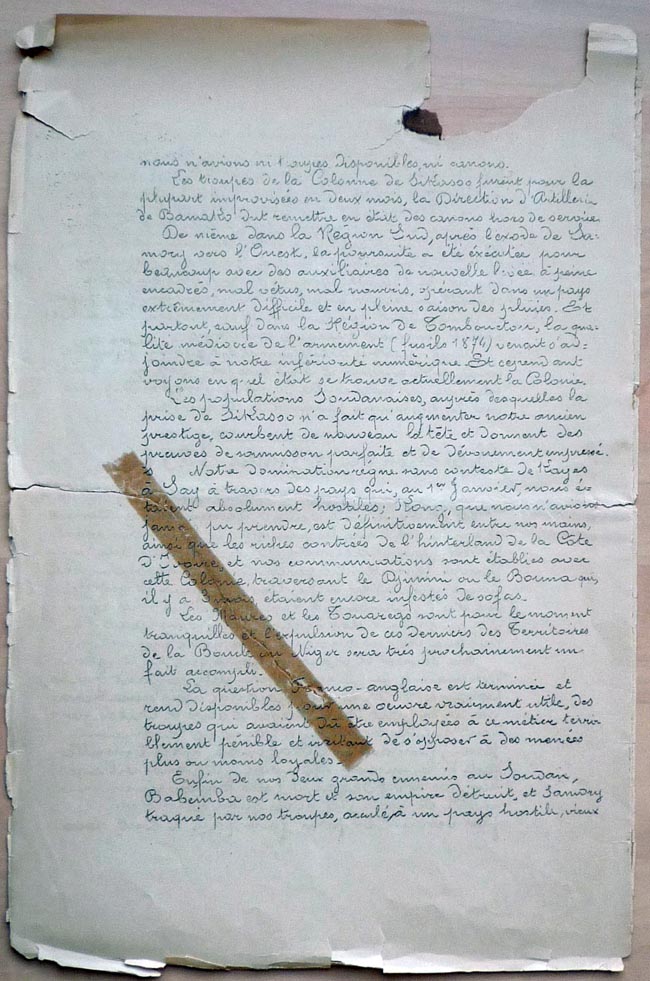 nous n'avions ni troupes disponibles, ni canons.
Les troupes de la Colonne de Sikasso furent pour la
plupart improvisées en deux mois, la Direction d'Artillerie
de Bamako dut remettre en état des canons hors de service.
De même dans la Région Sud, après l'exode de Sa-
mory vers l'Ouest, la poursuite a été exécutée pour
beaucoup avec des auxiliaires de nouvelle levée à peine
encadrés, mal vêtus, mal nourris, opérant dans un pays
extrêmement difficile et en pleine saison des pluies. Et
partout, sauf dans la Région de Tombouctou, la qua-
lité médiocre de l'armement (fusils 1874) venait s'ad-
joindre à notre infériorité numérique. Et cependant
voyons en quel état se trouve actuellement la Colonie.
Les populations Soudanaises, auprès desquelles la
prise de Sikasso n'a fait qu'augmenter notre ancien
prestige, courbent de nouveau la tête et donnent des
preuves de soumission parfaite et de dévouement empressé.
Notre domination règne sans conteste de Kayes
à Say à travers des pays qui, au 1er Janvier, nous é-
taient absolument hostiles; Kong, que nous n'avions
jamais pu prendre, est définitivement entre nos mains,
ainsi que les riches contrées de l'hinterland de la Côte
d'Ivoire, et nos communications sont établies avec
cette Colonie, traversant le Djimini ou le Bouna qui,
il y a mois étaient encore infestés de sofas.
Les Maures et les Touaregs sont pour le moment
tranquilles et l'expulsion de ces derniers des Territoires
de la Boucle du Niger sera très prochainement un
fait accompli.
La question Franco-anglaise est terminée et
rend disponibles pour une œuvre vraiment utile, des
troupes qui avaient dû être employées à ce métier terri-
blement pénible et irritant de s'opposer à des menées
plus ou moins loyales.
Enfin de nos deux grands ennemis au Soudan,
Babemba est mort et son empire détruit, et Samory
traqué par nos troupes, acculé à un pays hostile, vieux